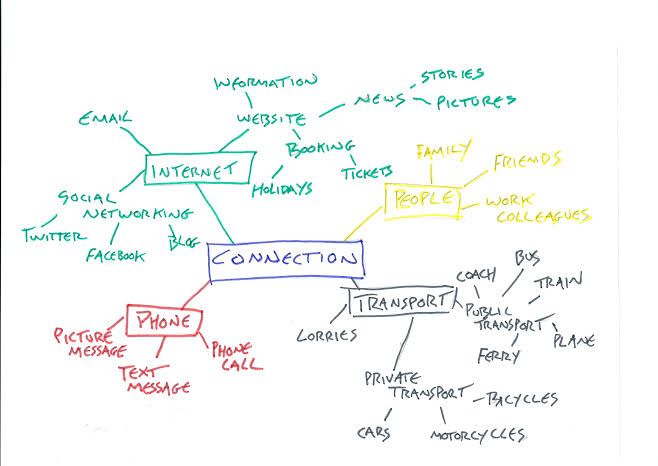 INFORMATION
STORIES
NEWS
PICTURES
EMAIL
WEBSITE
BOOKING
HOLIDAYS
TICKETS
INTERNET
SOCIAL
NETWORKING
TWITTER
FACEBOOK
BLOG
FAMILY
FRIENDS
PEOPLE
WORK
COLLEAGUES
CONNECTION
PHONE
PICTURE
MESSAGE
TEXT
MESSAGE
PHONE
CALL
TRANSPORT
LORRIES
COACH
BUS
TRAIN
PUBLIC
TRANSPORT
PLANE
FERRY
PRIVATE
TRANSPORT
BICYCLES
CARS
MOTORCYCLES